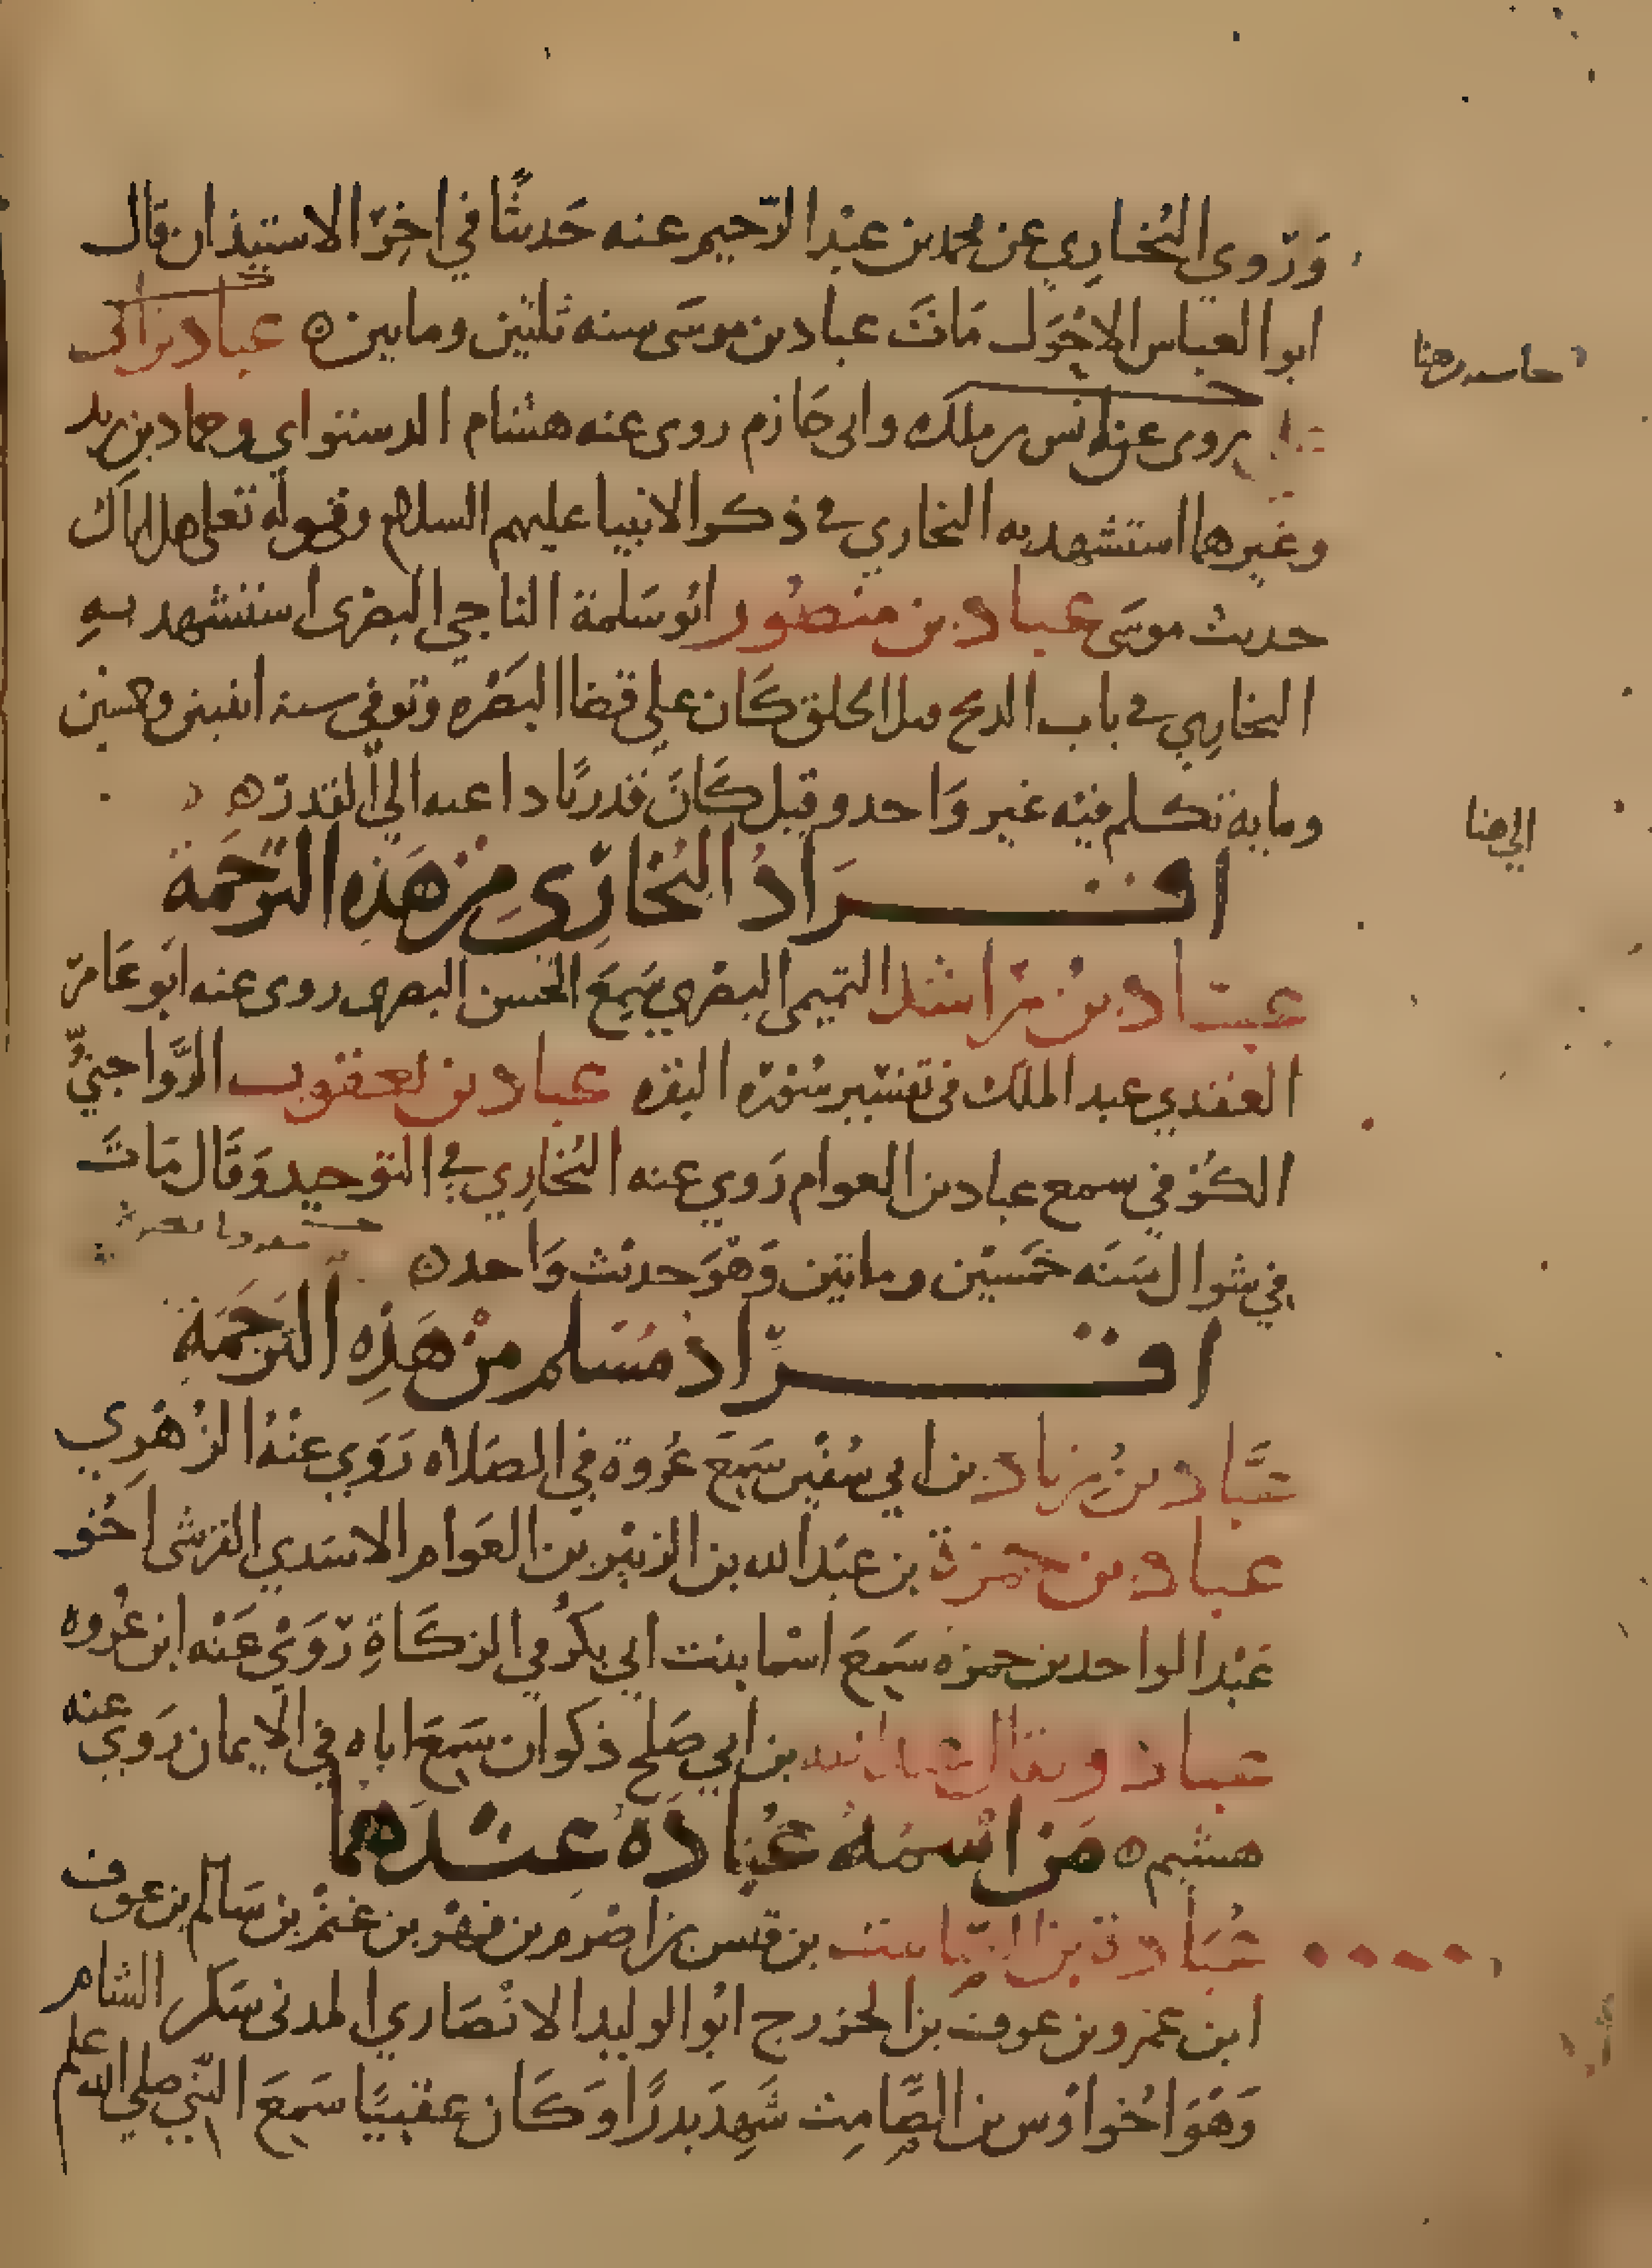 وَرَوي البُخارِي عن محمد بن عبْد الرّحيم عنه حَديثًا في اخِرّ الاستيذان قال
ابوا العباس الاحْوَل مَاتَ عباد بن موسَى سنه ثلثين ومايين ه عباد بن ابى
يروى عنه انس بن ملك وابي حَازم روى عنه هشام الدستواي وحماد بن زيد
وغيرها استشهد به البخاري في ذكر الانبيا عليهم السلام وقوله تعلى هل اتاك
حديث موسَى عباد بن منصُور ابو سَلمة الناجي البصْرى استشهد بهِ
البخارِي في باب الذبح قبل الحلق كَان على قضا البَصْره وتوفى سنة اثنين وخمسين
وماية تكلم فيْه غير وَاحد وقيل كَانَ قدريًا داعيه الى القدرْ ه
افــراد البُخارِى مِن هَذِه التَرْجمَة
عبّاد بنُ رَاشد التميمى البصْري سَمِعَ الحَسن البصرى روى عنه ابَو عَامرْ
العقدي عبد الملك في تفسْير سُوْرَه البقره عباد بن يعقوب الرَّواجنيُّ
الكُوْفي سمع عباد بن العوام رَوي عنه البُخارِي في التوحيد وَقَال مَاتَ
في شوال سَنَه خمَسيْن وماتين وَهوَ حديْث وَاحد ه
افــرَاد مُسَلم منْ هَذِه التَرجَمَة
عبَّاد بنُ زياد بن ابي سُفيْن سَمِعَ عُروة في الصَلاه رَوَي عنْهُ الزُهْرِي
عباد بن حمزة بن عبْد الله بن الزبيْر بن العَوام الاسَدي القرشى اخُو
عبْد الواحد بن حمزه سَمِعَ اسْما بنت ابي بكرْ في الزكَاةِ رَوَيْ عَنْه ابن عُرْوه
عباد ويقال عبد الله بن ابي صَلح ذكوان سَمِعَ اباه في الايمان رَوَي عنه
هشيم ه مَن اسْمهُ عُبادَه عنْدَهما
عُبَادة بن الصّامت بن قيس بن اصْرم بن فهْر بن غنمْ بن سَالم بن عوف
ابن عمرو بن عوف بن الخزرج ابُو الوليد الانْصَاري المدنى سَكَن الشام
وَهوَ اخُو اوْس بن الصَّامِت شَهِدَ بدرًا وَكَان عقبيًا سَمِعَ النَّبي صلي الله علم
الي هنا